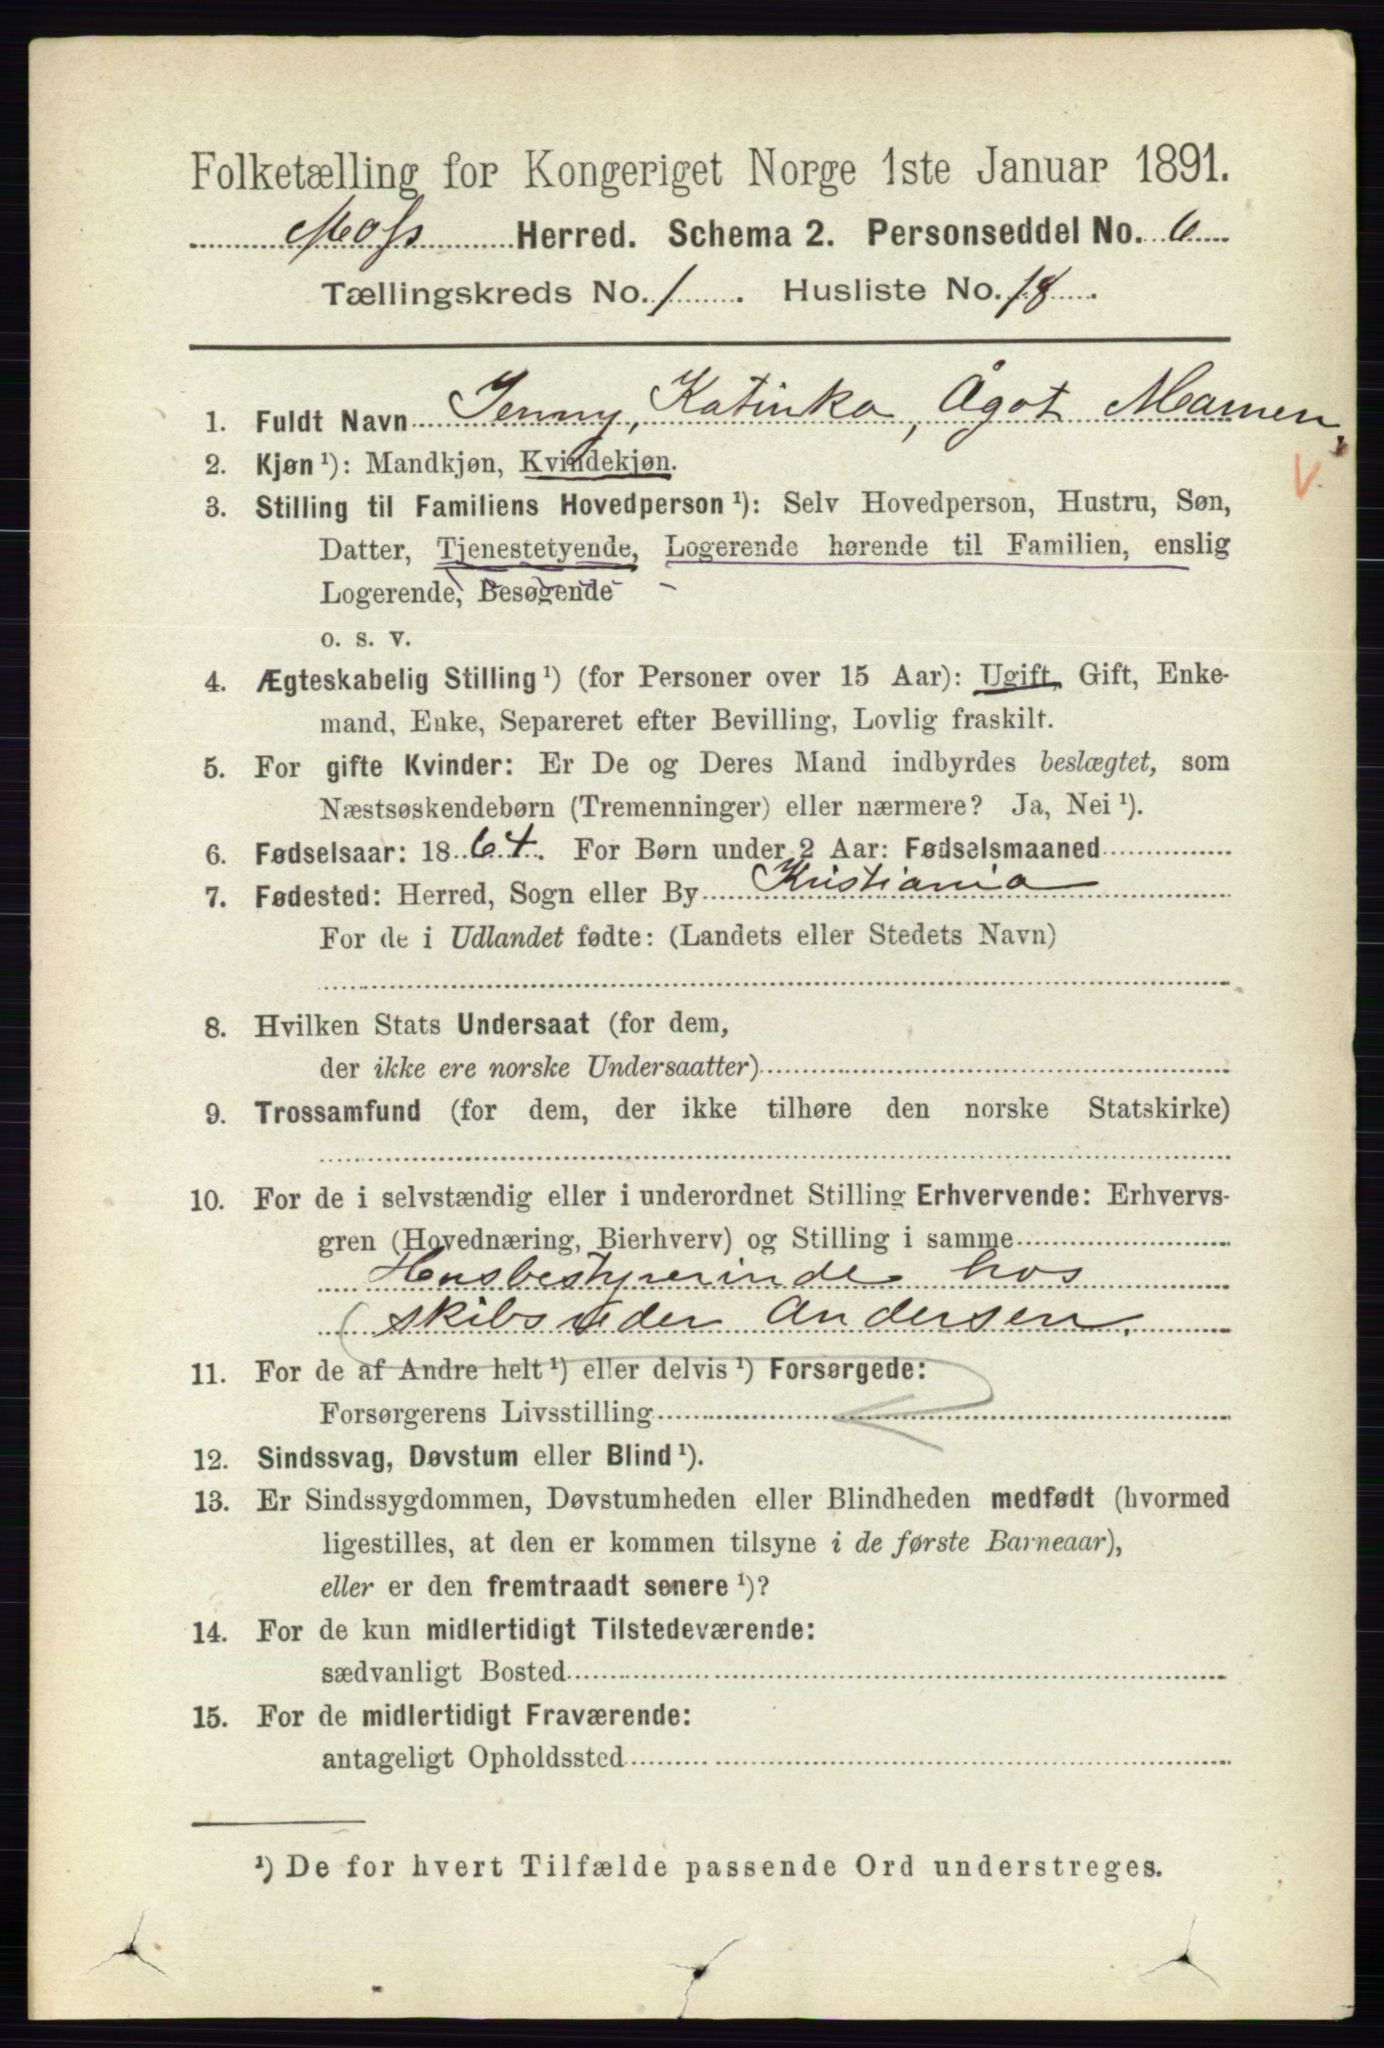 Folketælling for Kongeriget Norge 1ste Januar 1891.
Moss Herred. Schema 2. Personseddel No. 6
Tællingskreds No. 1. Husliste No. 18.
1. Fuldt Navn Jenny, Katinka, Ågot Mamen,
2. Kjøn ¹): Mandkjøn, Kvindekjøn.
V.
3. Stilling til Familiens Hovedperson ¹): Selv Hovedperson, Hustru, Søn,
Datter, Tjenestetyende, Logerende hørende til Familien, enslig
Logerende, Besøgende
o. s. v.
4. Ægteskabelig Stilling ¹) (for Personer over 15 Aar): Ugift, Gift, Enke-
mand, Enke, Separeret efter Bevilling, Lovlig fraskilt.
5. For gifte Kvinder: Er De og Deres Mand indbyrdes beslægtet, som
Næstsøskendebørn (Tremenninger) eller nærmere? Ja, Nei ¹).
6. Fødselsaar: 1864. For Børn under 2 Aar: Fødselsmaaned
7. Fødested: Herred, Sogn eller By Kristiania
For de i Udlandet fødte: (Landets eller Stedets Navn)
8. Hvilken Stats Undersaat (for dem,
der ikke ere norske Undersaatter)
9. Trossamfund (for dem, der ikke tilhøre den norske Statskirke)
10. For de i selvstændig eller i underordnet Stilling Erhvervende: Erhvervs-
gren (Hovednæring, Bierhverv) og Stilling i samme
Husbestyrerinde hos
(skibsreder Andersen.
11. For de af Andre helt ¹) eller delvis ¹) Forsørgede:
Forsørgerens Livsstilling
12. Sindssvag, Døvstum eller Blind ¹).
13. Er Sindssygdommen, Døvstumheden eller Blindheden medfødt (hvormed
ligestilles, at den er kommen tilsyne i de første Barneaar),
eller er den fremtraadt senere ¹)?
14. For de kun midlertidigt Tilstedeværende:
sædvanligt Bosted
15. For de midlertidigt Fraværende:
antageligt Opholdssted
¹) De for hvert Tilfælde passende Ord understreges.